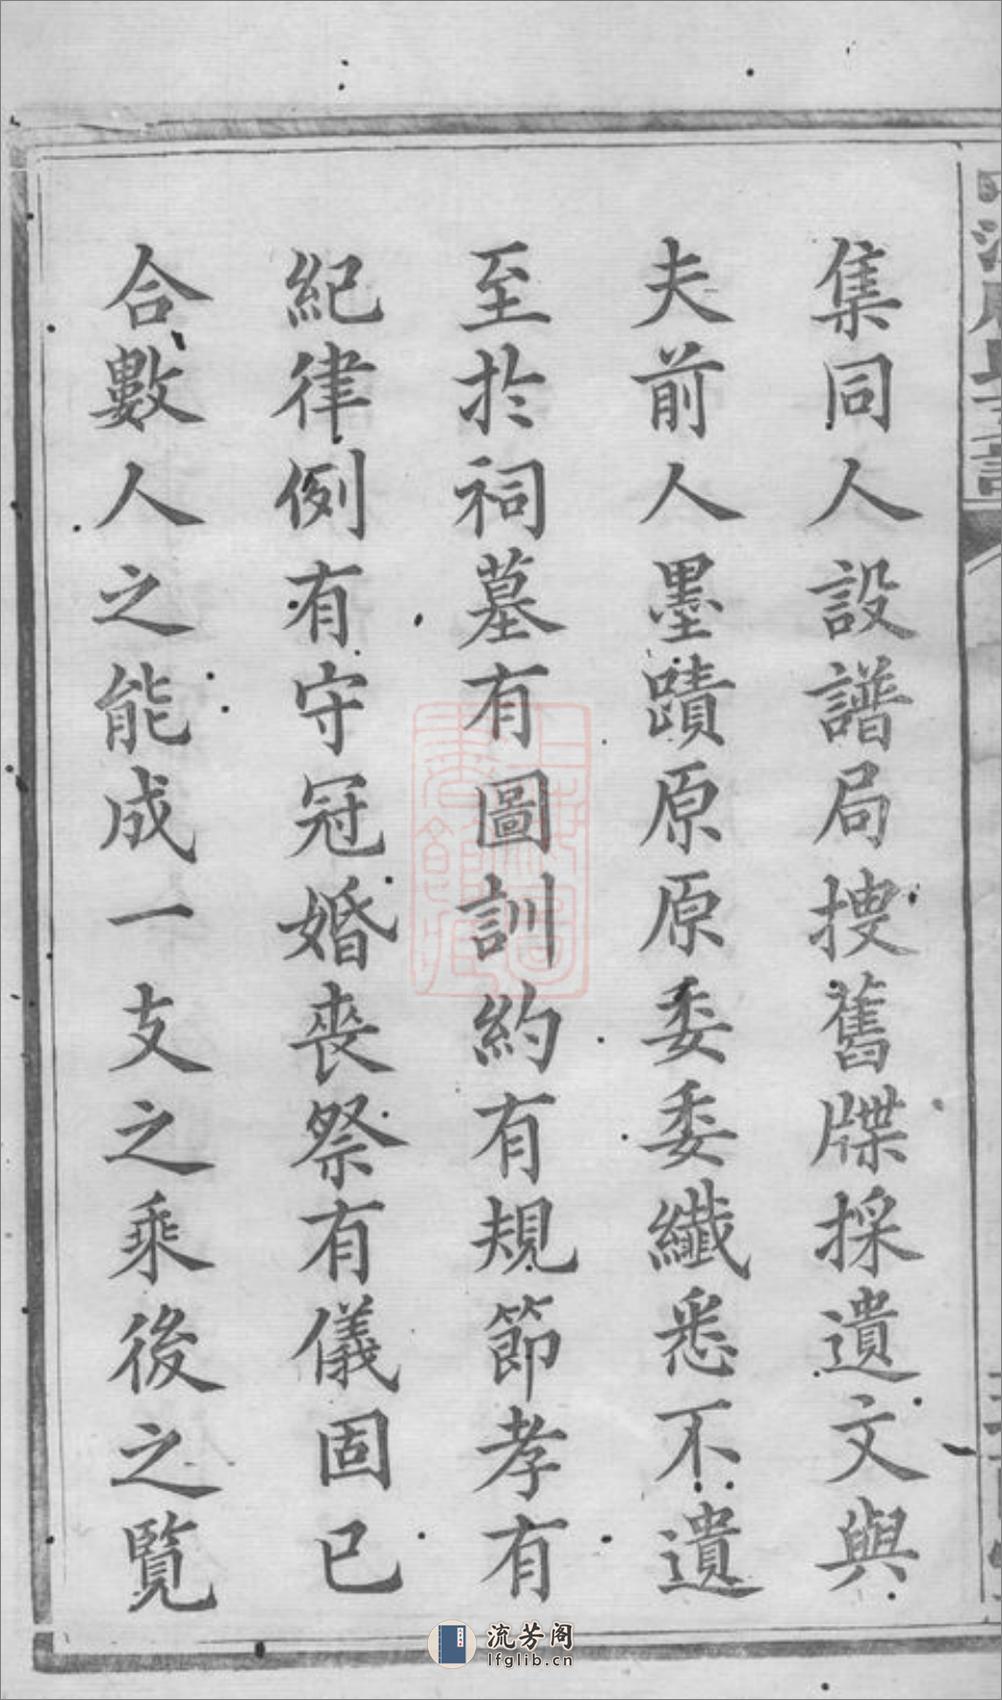 集同人設譜局搜舊牒採遺文與
夫前人墨蹟原原委委纖悉不遺
至於祠墓有圖訓約有規節孝有
紀律例有守冠婚喪祭有儀固已
合數人之能成一支之乘後之覽
上海圖書館藏
流芳阁
lfglib.cn